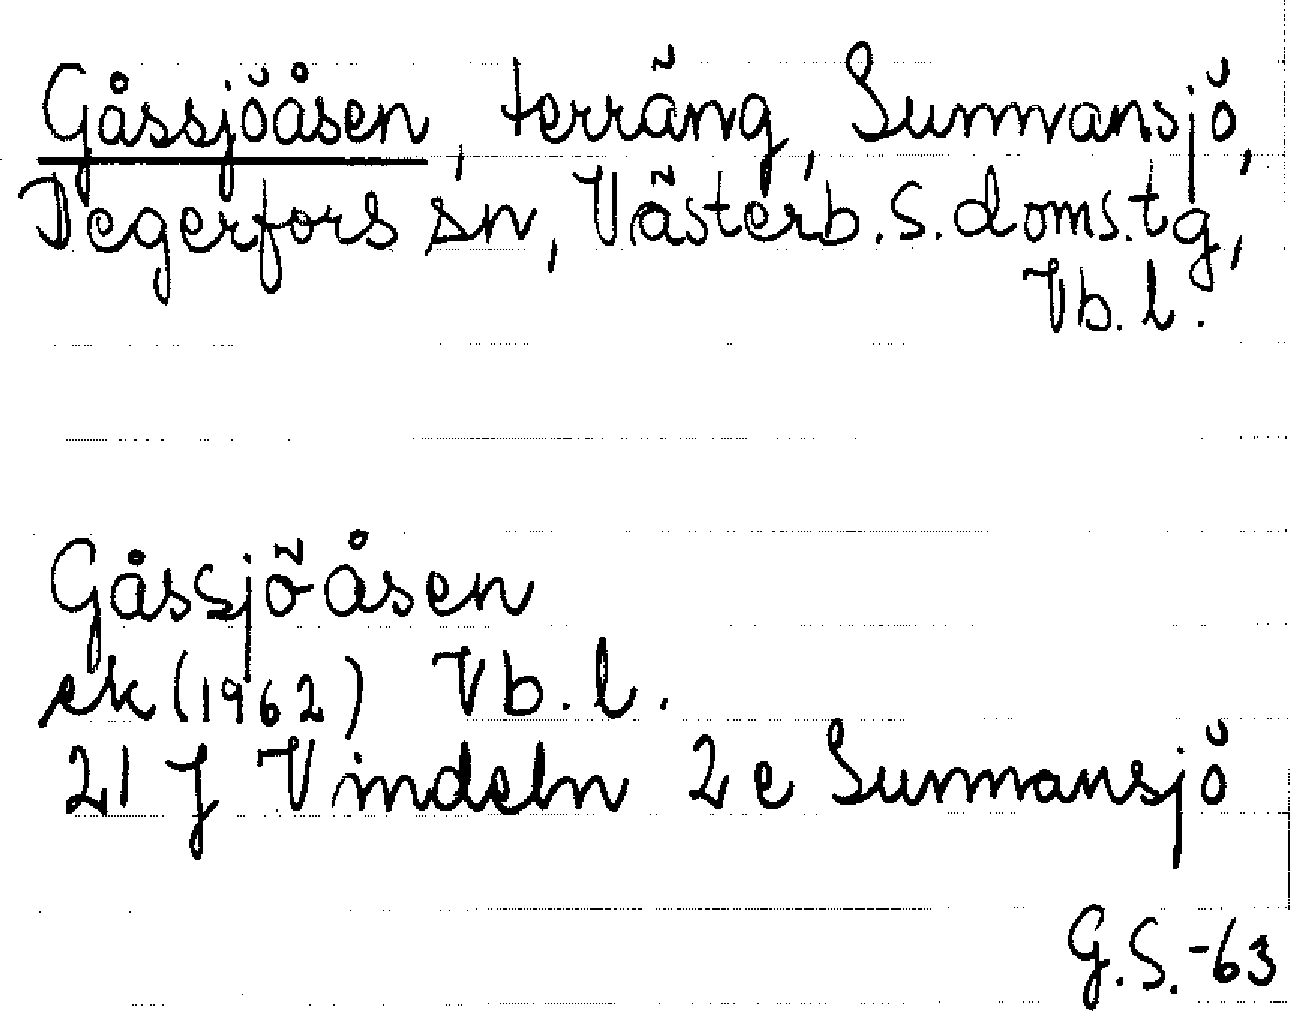 Gåssjöåsen, terräng, Sunnansjö,
Degerfors sn, Västerb. s. doms.tg,
Vb. l.
Gåssjöåsen
ek (1962) Vb. l.
21 J Vindeln 2e Sunnansjö
G.S.-63